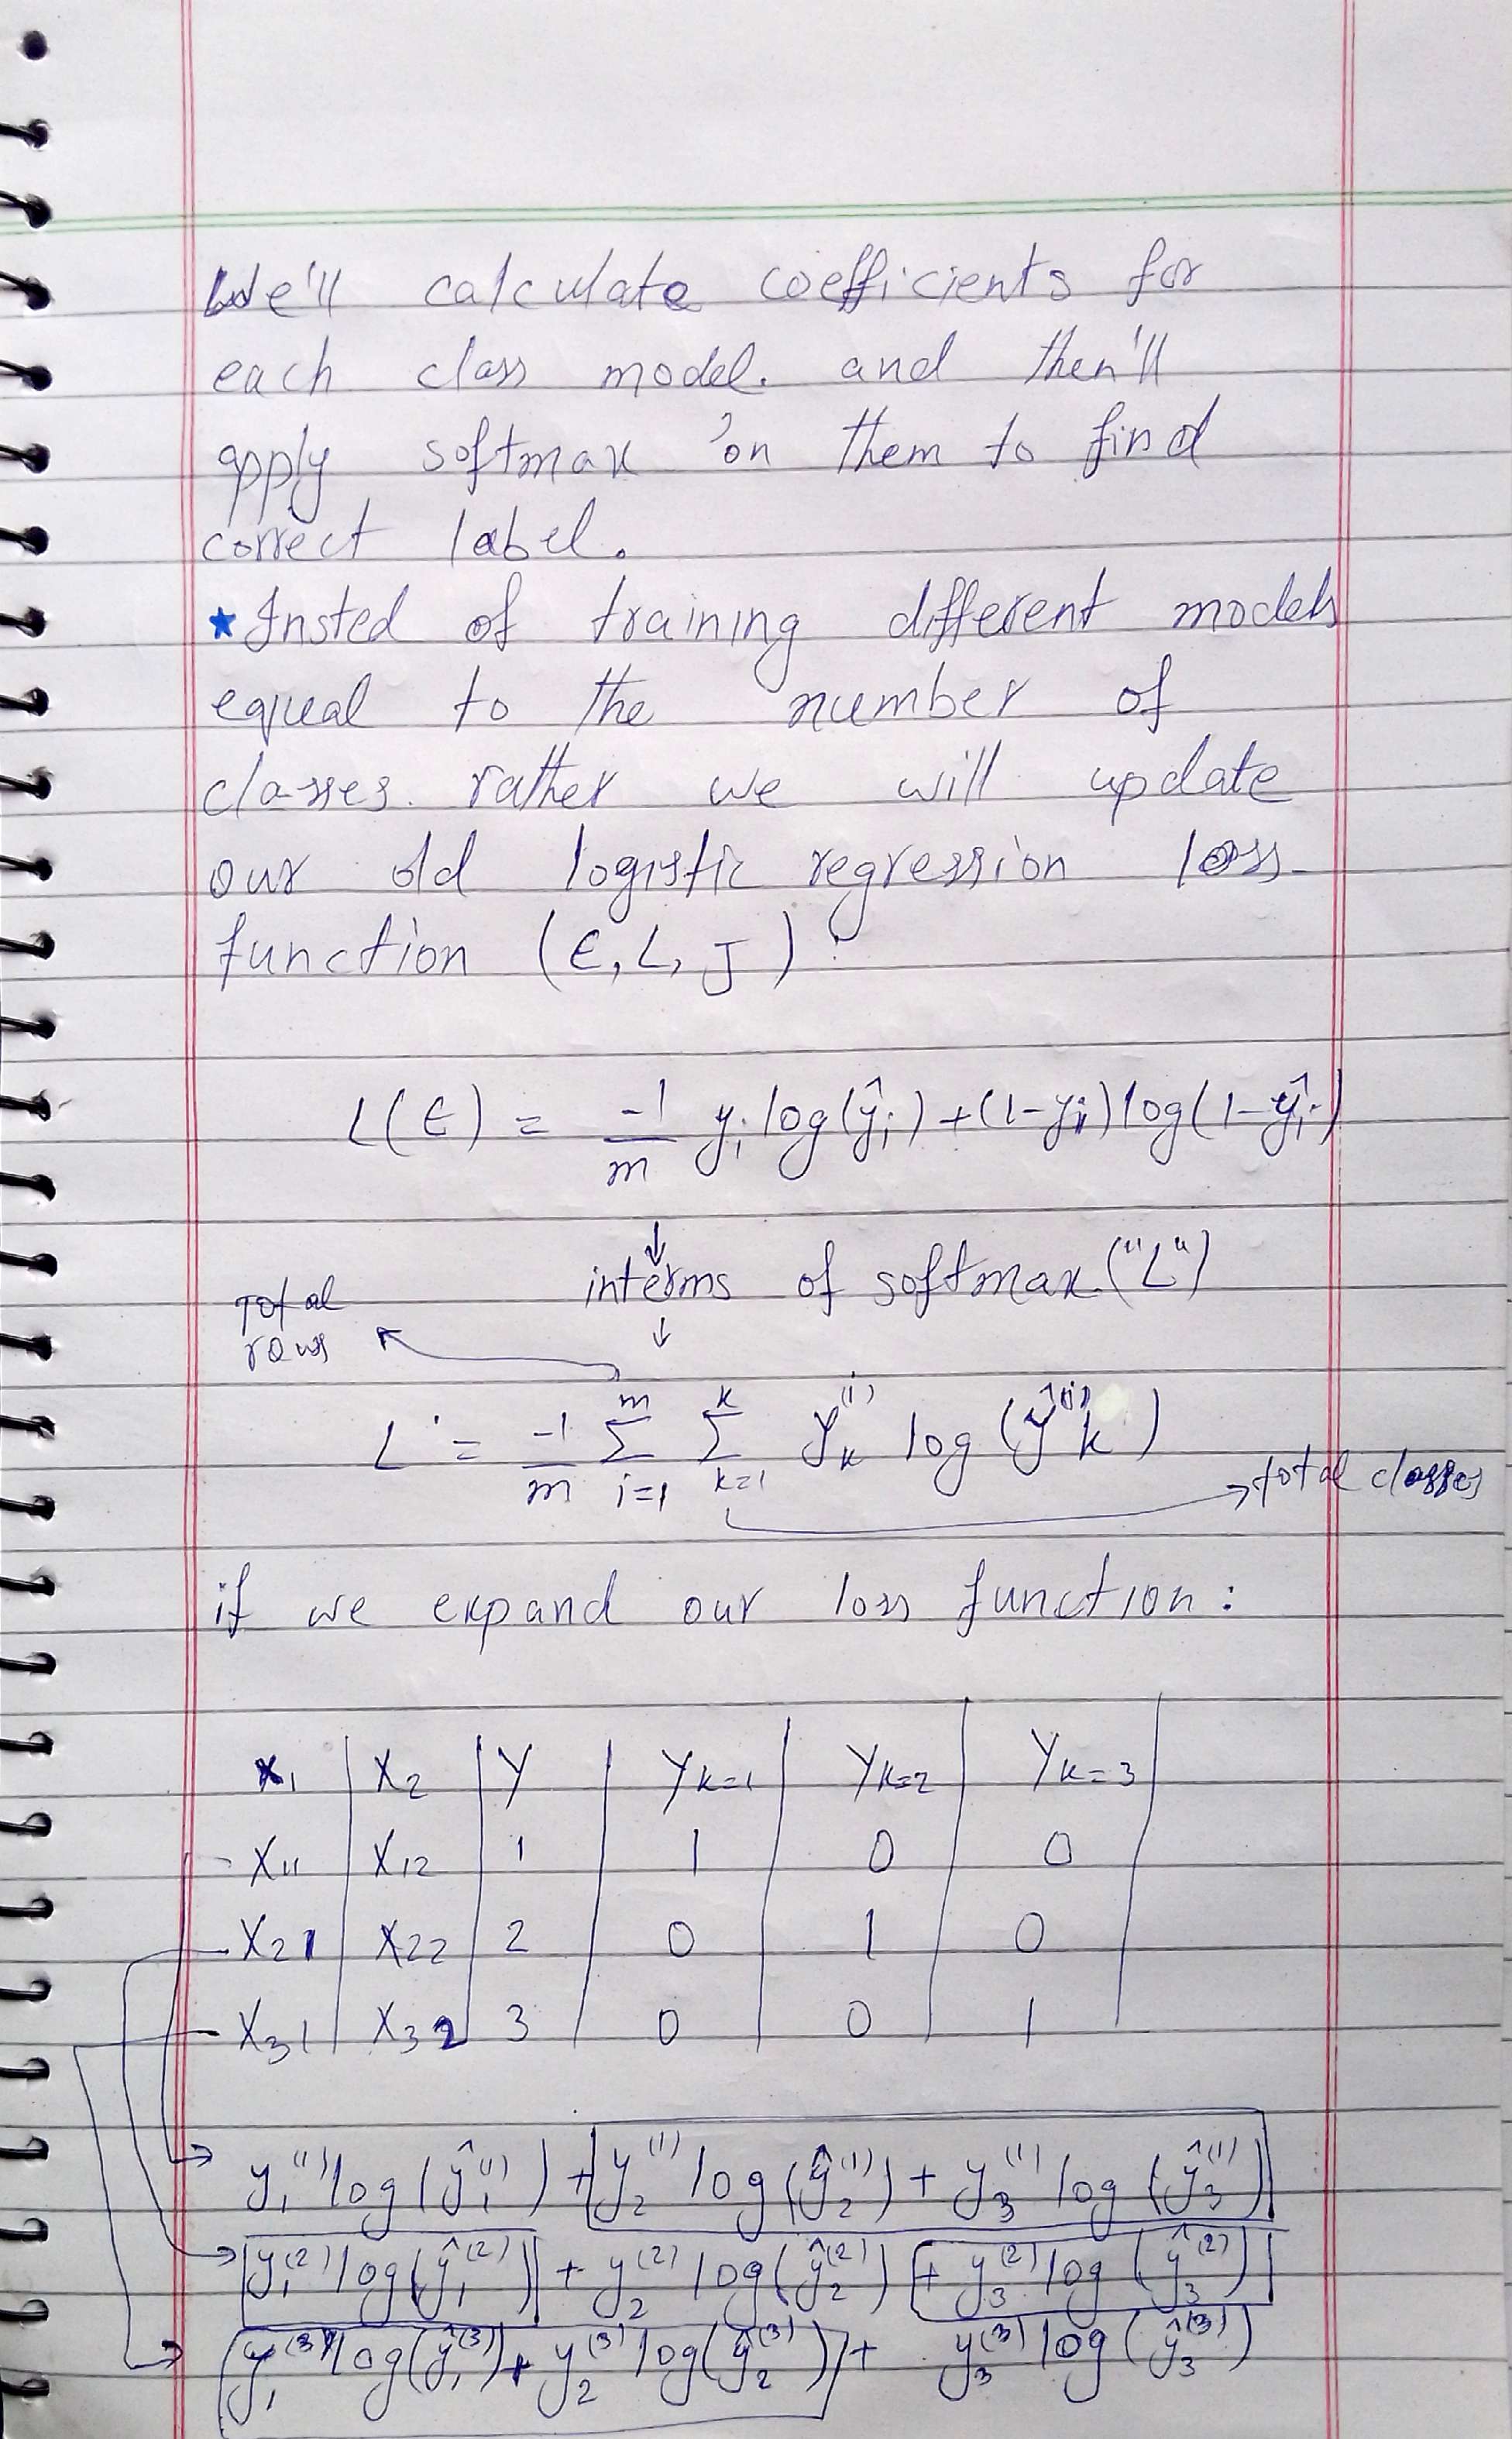 We'll calculate coefficients for
each class model. and then'll
apply softmax on them to find
correct label.
★ Insted of training different models
equal to the number of
classes. rather we will update
our old logistic regression loss
function (E, L, J):
L(E) = -1/m yᵢ log(ŷᵢ) + (1-yᵢ) log(1-ŷᵢ)
↓
interms of softmax ("L")
↓
Total
rows
L = -1/m Σᵢ₌₁ᵐ Σₖ₌₁ᴷ yₖ⁽ⁱ⁾ log(ŷ⁽ⁱ⁾k)
total classes
if we expand our loss function:
X₁ | X₂ | Y | Yₖ₌₁ | Yₖ₌₂ | Yₖ₌₃
X₁₁ | X₁₂ | 1 | 1 | 0 | 0
X₂₁ | X₂₂ | 2 | 0 | 1 | 0
X₃₁ | X₃₂ | 3 | 0 | 0 | 1
y₁⁽¹⁾ log(ŷ₁⁽¹⁾) + y₂⁽¹⁾ log(ŷ₂⁽¹⁾) + y₃⁽¹⁾ log(ŷ₃⁽¹⁾)
y₁⁽²⁾ log(ŷ₁⁽²⁾) + y₂⁽²⁾ log(ŷ₂⁽²⁾) + y₃⁽²⁾ log(ŷ₃⁽²⁾)
y₁⁽³⁾ log(ŷ₁⁽³⁾) + y₂⁽³⁾ log(ŷ₂⁽³⁾) + y₃⁽³⁾ log(ŷ₃⁽³⁾)